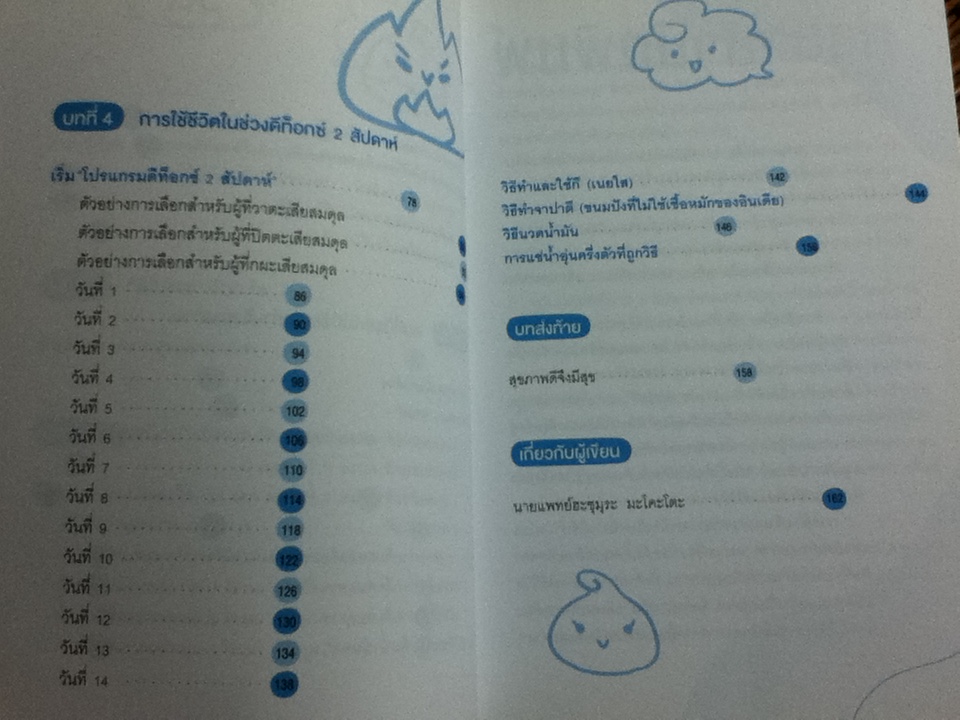 บทที่ 4 การใช้ชีวิตในช่วงดีท็อกซ์ 2 สัปดาห์
เริ่ม "โปรแกรมดีท็อกซ์ 2 สัปดาห์" 78
ตัวอย่างการเลือกสำหรับผู้ที่วาตะเสียสมดุล
ตัวอย่างการเลือกสำหรับผู้ที่ปิตตะเสียสมดุล
ตัวอย่างการเลือกสำหรับผู้ที่กผะเสียสมดุล
วันที่ 1 86
วันที่ 2 90
วันที่ 3 94
วันที่ 4 98
วันที่ 5 102
วันที่ 6 106
วันที่ 7 110
วันที่ 8 114
วันที่ 9 118
วันที่ 10 122
วันที่ 11 126
วันที่ 12 130
วันที่ 13 134
วันที่ 14 138
วิธีทำและใช้กี (เนยใส) 142
วิธีทำจาปาตี (ขนมปังที่ไม่ใช้เชื้อหมักของอินเดีย) 144
วิธีนวดน้ำมัน 146
การแช่น้ำอุ่นครึ่งตัวที่ถูกวิธี
บทส่งท้าย
สุขภาพดีจึงมีสุข 158
เกี่ยวกับผู้เขียน
นายแพทย์ฮะซุมุระ มะโคะโตะ 162